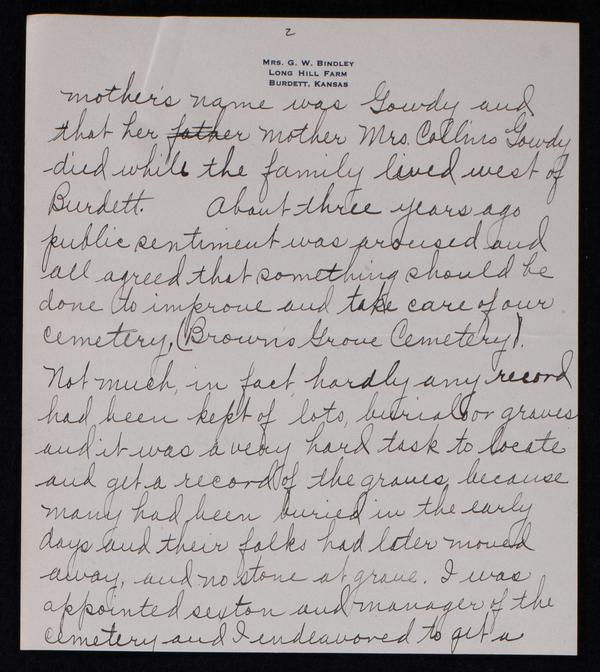 2
MRS. G. W. BINDLEY
LONG HILL FARM
BURDETT, KANSAS
mother's name was Gowdy and
that her father mother Mrs. Collins Gowdy
died while the family lived west of
Burdett. About three years ago
public sentiment was aroused and
all agreed that something should be
done to improve and take care of our
cemetery, (Browns Grove Cemetery).
Not much, in fact, hardly any record
had been kept of lots, burials or graves
and it was a very hard task to locate
and get a record of the graves, because
many had been buried in the early
days and their folks had later moved
away, and no stone at grave. I was
appointed sexton and manager of the
cemetery and I endeavored to get a